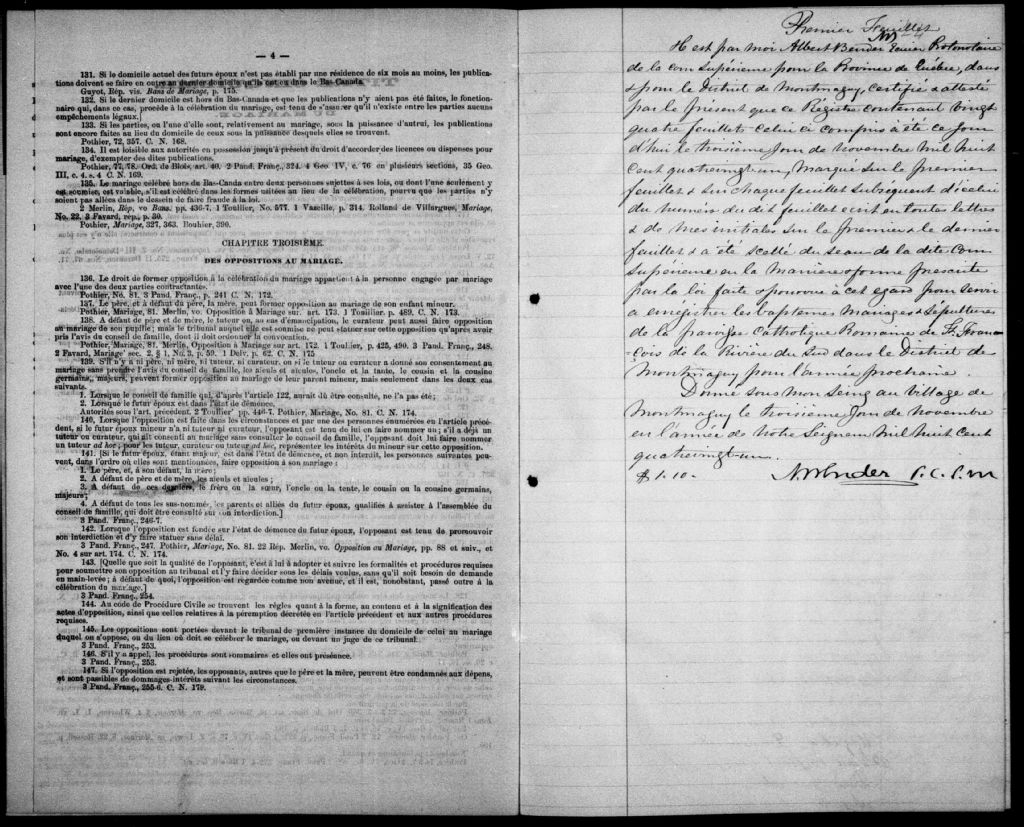 — 4 —
131. Si le domicile actuel des futurs époux n'est pas établi par une résidence de six mois au moins, les publica-
tions doivent se faire en outre au dernier domicile qu'ils ont eu dans le Bas-Canada.
Guyot, Rép. vis. Bans de Mariage, p. 175.
132. Si le dernier domicile est hors du Bas-Canada et que les publications n'y aient pas été faites, le fonction-
naire qui, dans ce cas, procède à la célébration du mariage, est tenu de s'assurer qu'il n'existe entre les parties aucuns
empêchements légaux.]
133. Si les parties, ou l'une d'elles, sont, relativement au mariage, sous la puissance d'autrui, les publications
sont encore faites au lieu du domicile de ceux sous la puissance desquels elles se trouvent.
Pothier, 72, 357. C. N. 168.
134. Il est loisible aux autorités en possession jusqu'à présent du droit d'accorder des licences ou dispenses pour
mariage, d'exempter des dites publications.
Pothier, 77, 78. Ord. de Blois, art. 40. 2 Pand. Franç., 324. 4 Geo. IV, c. 76 en plusieurs sections, 35 Geo.
III, c. 4. s. 4 C. N. 169.
135. Le mariage célébré hors du Bas-Canda entre deux personnes sujettes à ses lois, ou dont l'une seulement y
est soumise, est valable, s'il est célébré dans les formes usitées au lieu de la célébration, pourvu que les parties n'y
soient pas allées dans le dessein de faire fraude à la loi.
2 Merlin, Rép, vo Bans. pp. 436-7. 1 Toullier, No. 577. 1 Vazeille, p. 314. Rolland de Villargues, Mariage,
No. 22. 3 Favard, rép., p. 30.
Pothier, Mariage, 327, 363. Bouhier, 390.
CHAPITRE TROISIÈME.
DES OPPOSITIONS AU MARIAGE.
136. Le droit de former opposition à la célébration du mariage appartient à la personne engagée par mariage
avec l'une des deux parties contractantes.
Pothier, No. 81. 3 Pand. Franç., p. 241 C. N. 172.
137. Le père, et à défaut du père, la mère, peut former opposition au mariage de son enfant mineur.
Pothier, Mariage, 81. Merlin, vo. Opposition à Mariage sur art. 173. 1 Touillier, p. 489. C. N. 173.
138. A défaut de père et de mère, le tuteur ou, au cas d'émancipation, le curateur peut aussi faire opposition
au mariage de son pupille; mais le tribunal auquel elle est soumise ne peut statuer sur cette opposition qu'après avoir
pris l'avis du conseil de famille, dont il doit ordonner la convocation.
Pothier, Mariage, 81. Merlin, Opposition à Mariage sur art. 172. 1 Toullier, p. 425, 490. 3 Pand. Franç., 248.
2 Favard, Mariage, sec. 2. § 1, No. 3, p. 59. 1 Delv, p. 62. C. N. 175
139. S'il n'y a ni père, ni mère, ni tuteur, ni curateur, ou si le tuteur ou curateur a donné son consentement au
mariage sans prendre l'avis du conseil de famille, les aïeuls et aïeules, l'oncle et la tante, le cousin et la cousine
germains, majeurs, peuvent former opposition au mariage de leur parent mineur, mais seulement dans les deux cas
suivants.
1. Lorsque le conseil de famille qui, d'après l'article 122, aurait dû être consulté, ne l'a pas été;
2. Lorsque le futur époux est dans l'état de démence.
Autorités sous l'art. précédent. 2 Toullier, pp. 446-7. Pothier, Mariage, No. 81. C. N. 174.
140. Lorsque l'opposition est faite dans les circonstances et par une des personnes énumérées en l'article précé-
dent, si le futur époux mineur n'a ni tuteur ni curateur, l'opposant est tenu de lui en faire nommer un; s'il a déjà un
tuteur ou curateur, qui ait consenti au mariage sans consulter le conseil de famille, l'opposant doit lui faire nommer
un tuteur ad hoc; pour les tuteur, curateur ou tuteur ad hoc, représenter les intérêts du mineur sur cette opposition.
141. [Si le futur époux, étant majeur, est dans l'état de démence, et non interdit, les personnes suivantes peu-
vent, dans l'ordre où elles sont mentionnées, faire opposition à son mariage:
1. Le père, et, à son défaut, la mère;
2. A défaut de père et de mère, les aïeuls et aïeules;
3. A défaut de ces derniers, le frère ou la sœur, l'oncle ou la tante, le cousin ou la cousine germains,
majeurs;
4. A défaut de tous les sus-nommés, les parents et alliés du futur époux, qualifiés à assister à l'assemblée du
conseil de famille, qui doit être consulté sur son interdiction.]
3 Pand. Franç., 246-7.
142. Lorsque l'opposition est fondée sur l'état de démence du futur époux, l'opposant est tenu de promouvoir
son interdiction et d'y faire statuer sans délai.
3 Pand. Franç., 247. Pothier, Mariage, No. 81. 22 Rép. Merlin, vo. Opposition au Mariage, pp. 88 et suiv., et
No. 4 sur art. 174. C. N. 174.
143. [Quelle que soit la qualité de l'opposant, c'est à lui à adopter et suivre les formalités et procédures requises
pour soumettre son opposition au tribunal et l'y faire décider sous les délais voulus, sans qu'il soit besoin de demande
en main-levée; à défaut de quoi, l'opposition est regardée comme non avenue, et il est, nonobstant, passé outre à la
célébration du mariage.]
3 Pand. Franç., 254.
144. Au code de Procédure Civile se trouvent les règles quant à la forme, au contenu et à la signification des
actes d'opposition, ainsi que celles relatives à la péremption décrétée en l'article précédent et aux autres procédures
requises.
145. Les oppositions sont portées devant le tribunal de première instance du domicile de celui au mariage
duquel on s'oppose, ou du lieu où doit se célébrer le mariage, ou devant un juge de ce tribunal.
3 Pand. Franç., 253.
146. S'il y a appel, les procédures sont sommaires et elles ont préséance.
3 Pand. Franç., 253.
147. Si l'opposition est rejetée, les opposants, autres que le père et la mère, peuvent être condamnés aux dépens,
et sont passibles de dommages-intérêts suivant les circonstances.
3 Pand. Franç., 255-6. C. N. 179.
Premier Feuillet
Il est par moi Albert Bender Ecuier Protonotaire
de la cour Supérieure pour la Province de Québec, dans
& pour le District de Montmagny, certifié & attesté
par le présent que ce Registre contenant Vingt
quatre feuillets celui ci compris a été ce jour
d'hui le troisième jour de Novembre Mil huit
Cent quatrevingt un, Marqué sur le premier
feuillet & sur chaque feuillet subséquent d'icelui
du numéro du dit feuillet ecrit en toutes lettres
& de mes initiales sur le premier & le dernier
feuillet & a été scellé du sceau de la dite Cour
Supérieure en la Manière & forme prescrite
par la loi faite & pourvue à cet egard pour servir
a enrégistrer les baptêmes Mariages & Sépultures
de la paroisse Catholique Romaine de St Fran
cois de la Rivière du Sud dans le District de
Montmagny pour l'année prochaine.
Donné sous mon Seing au Village de
Montmagny le troisième jour de Novembre
en l'année de Notre Seigneur Mil huit Cent
quatrevingt-un.
$ 1.10.
A Bender P. C. S. M